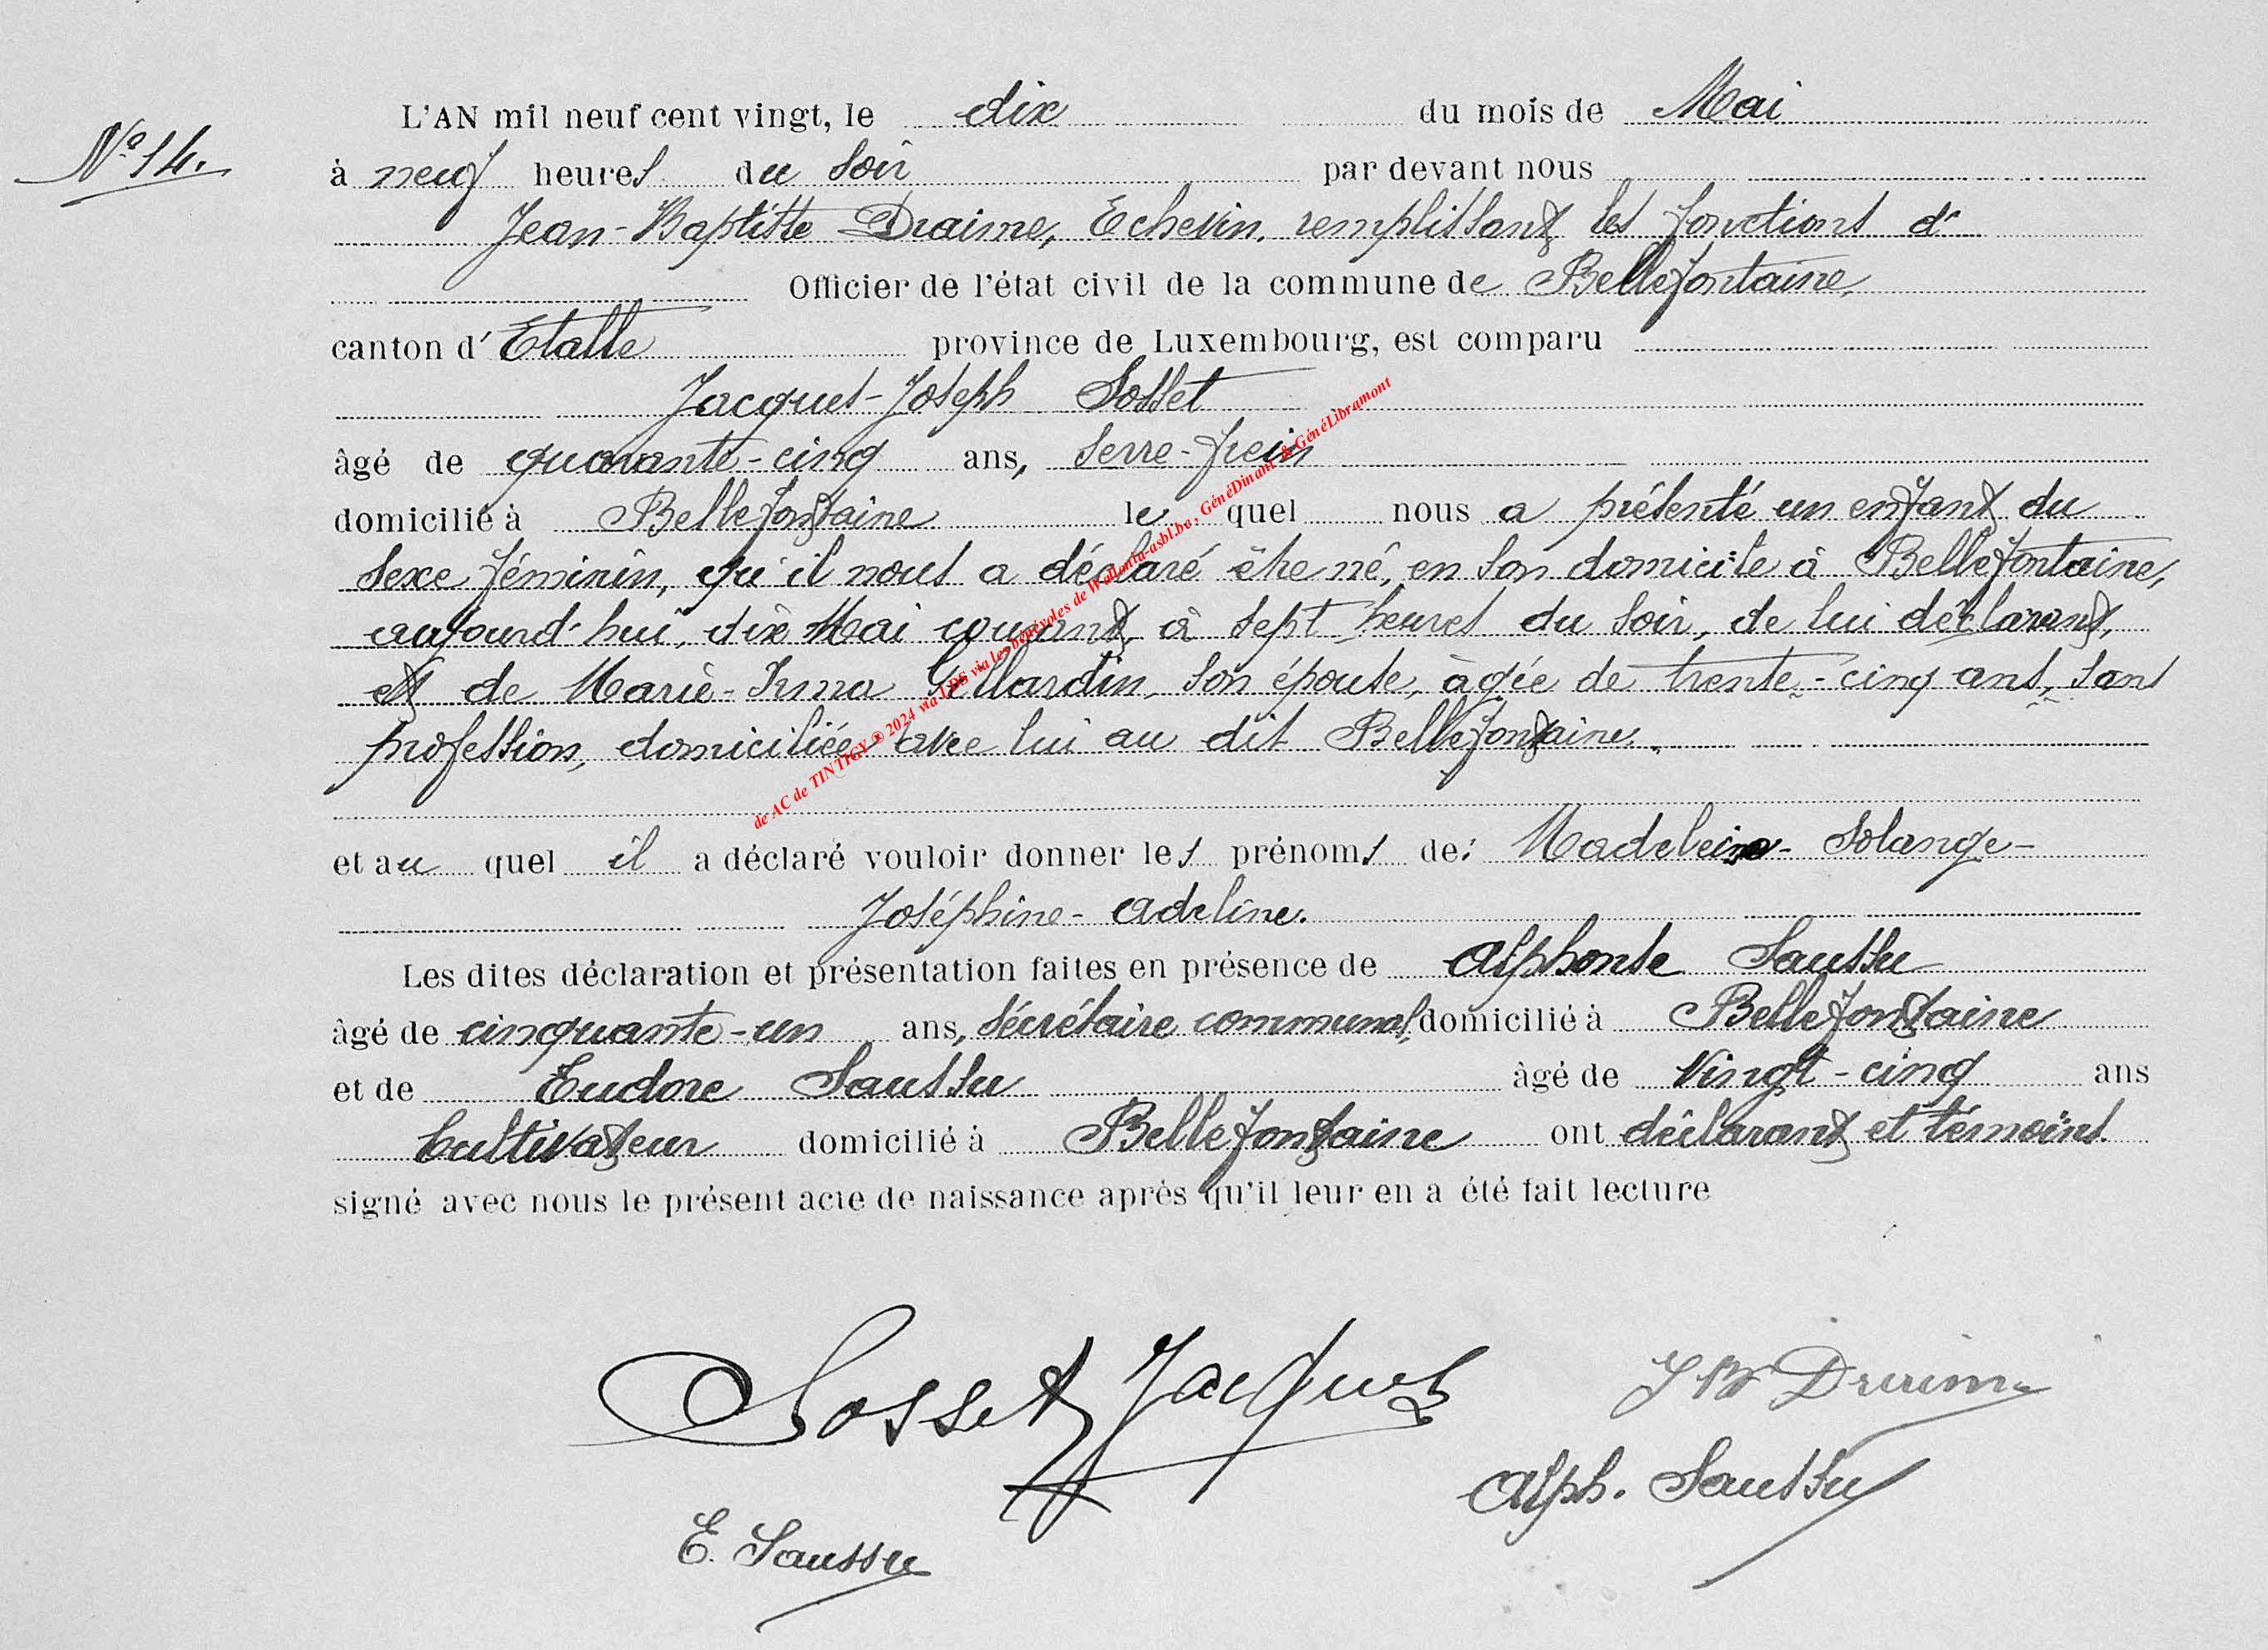 L'AN mil neuf cent vingt, le dix du mois de Mai
N° 14.
à neuf heures du soir par devant nous
Jean-Baptiste Draime, Echevin, remplissant les fonctions d'
Officier de l'état civil de la commune de Bellefontaine,
canton d'Etalle province de Luxembourg, est comparu
Jacques-Joseph Sosset
âgé de quarante-cinq ans, serre-frein
domicilié à Bellefontaine le quel nous a présenté un enfant du
sexe féminin, qu'il nous a déclaré être né, en son domicile à Bellefontaine,
aujourd'hui, dix Mai courant, à sept heures du soir, de lui déclarant,
et de Marie-Irma Gillardin, son épouse, âgée de trente-cinq ans, sans
profession, domiciliée avec lui au dit Bellefontaine.
et au quel il a déclaré vouloir donner les prénoms de: Madeleine-Solange-
Joséphine-Adeline.
Les dites déclaration et présentation faites en présence de Alphonse Saussu
âgé de cinquante-un ans, secrétaire communal, domicilié à Bellefontaine
et de Eudore Saussu âgé de vingt-cinq ans
cultivateur domicilié à Bellefontaine ont déclarant et témoins.
signé avec nous le présent acte de naissance après qu'il leur en a été fait lecture
Sosset Jacques
JB Draime
Alph. Saussu
E. Saussu
de AC de TINTIGY © 2024 via LDS via les bénévoles de Wallonia-asbl.be, GénéDinant & GénéLibramont